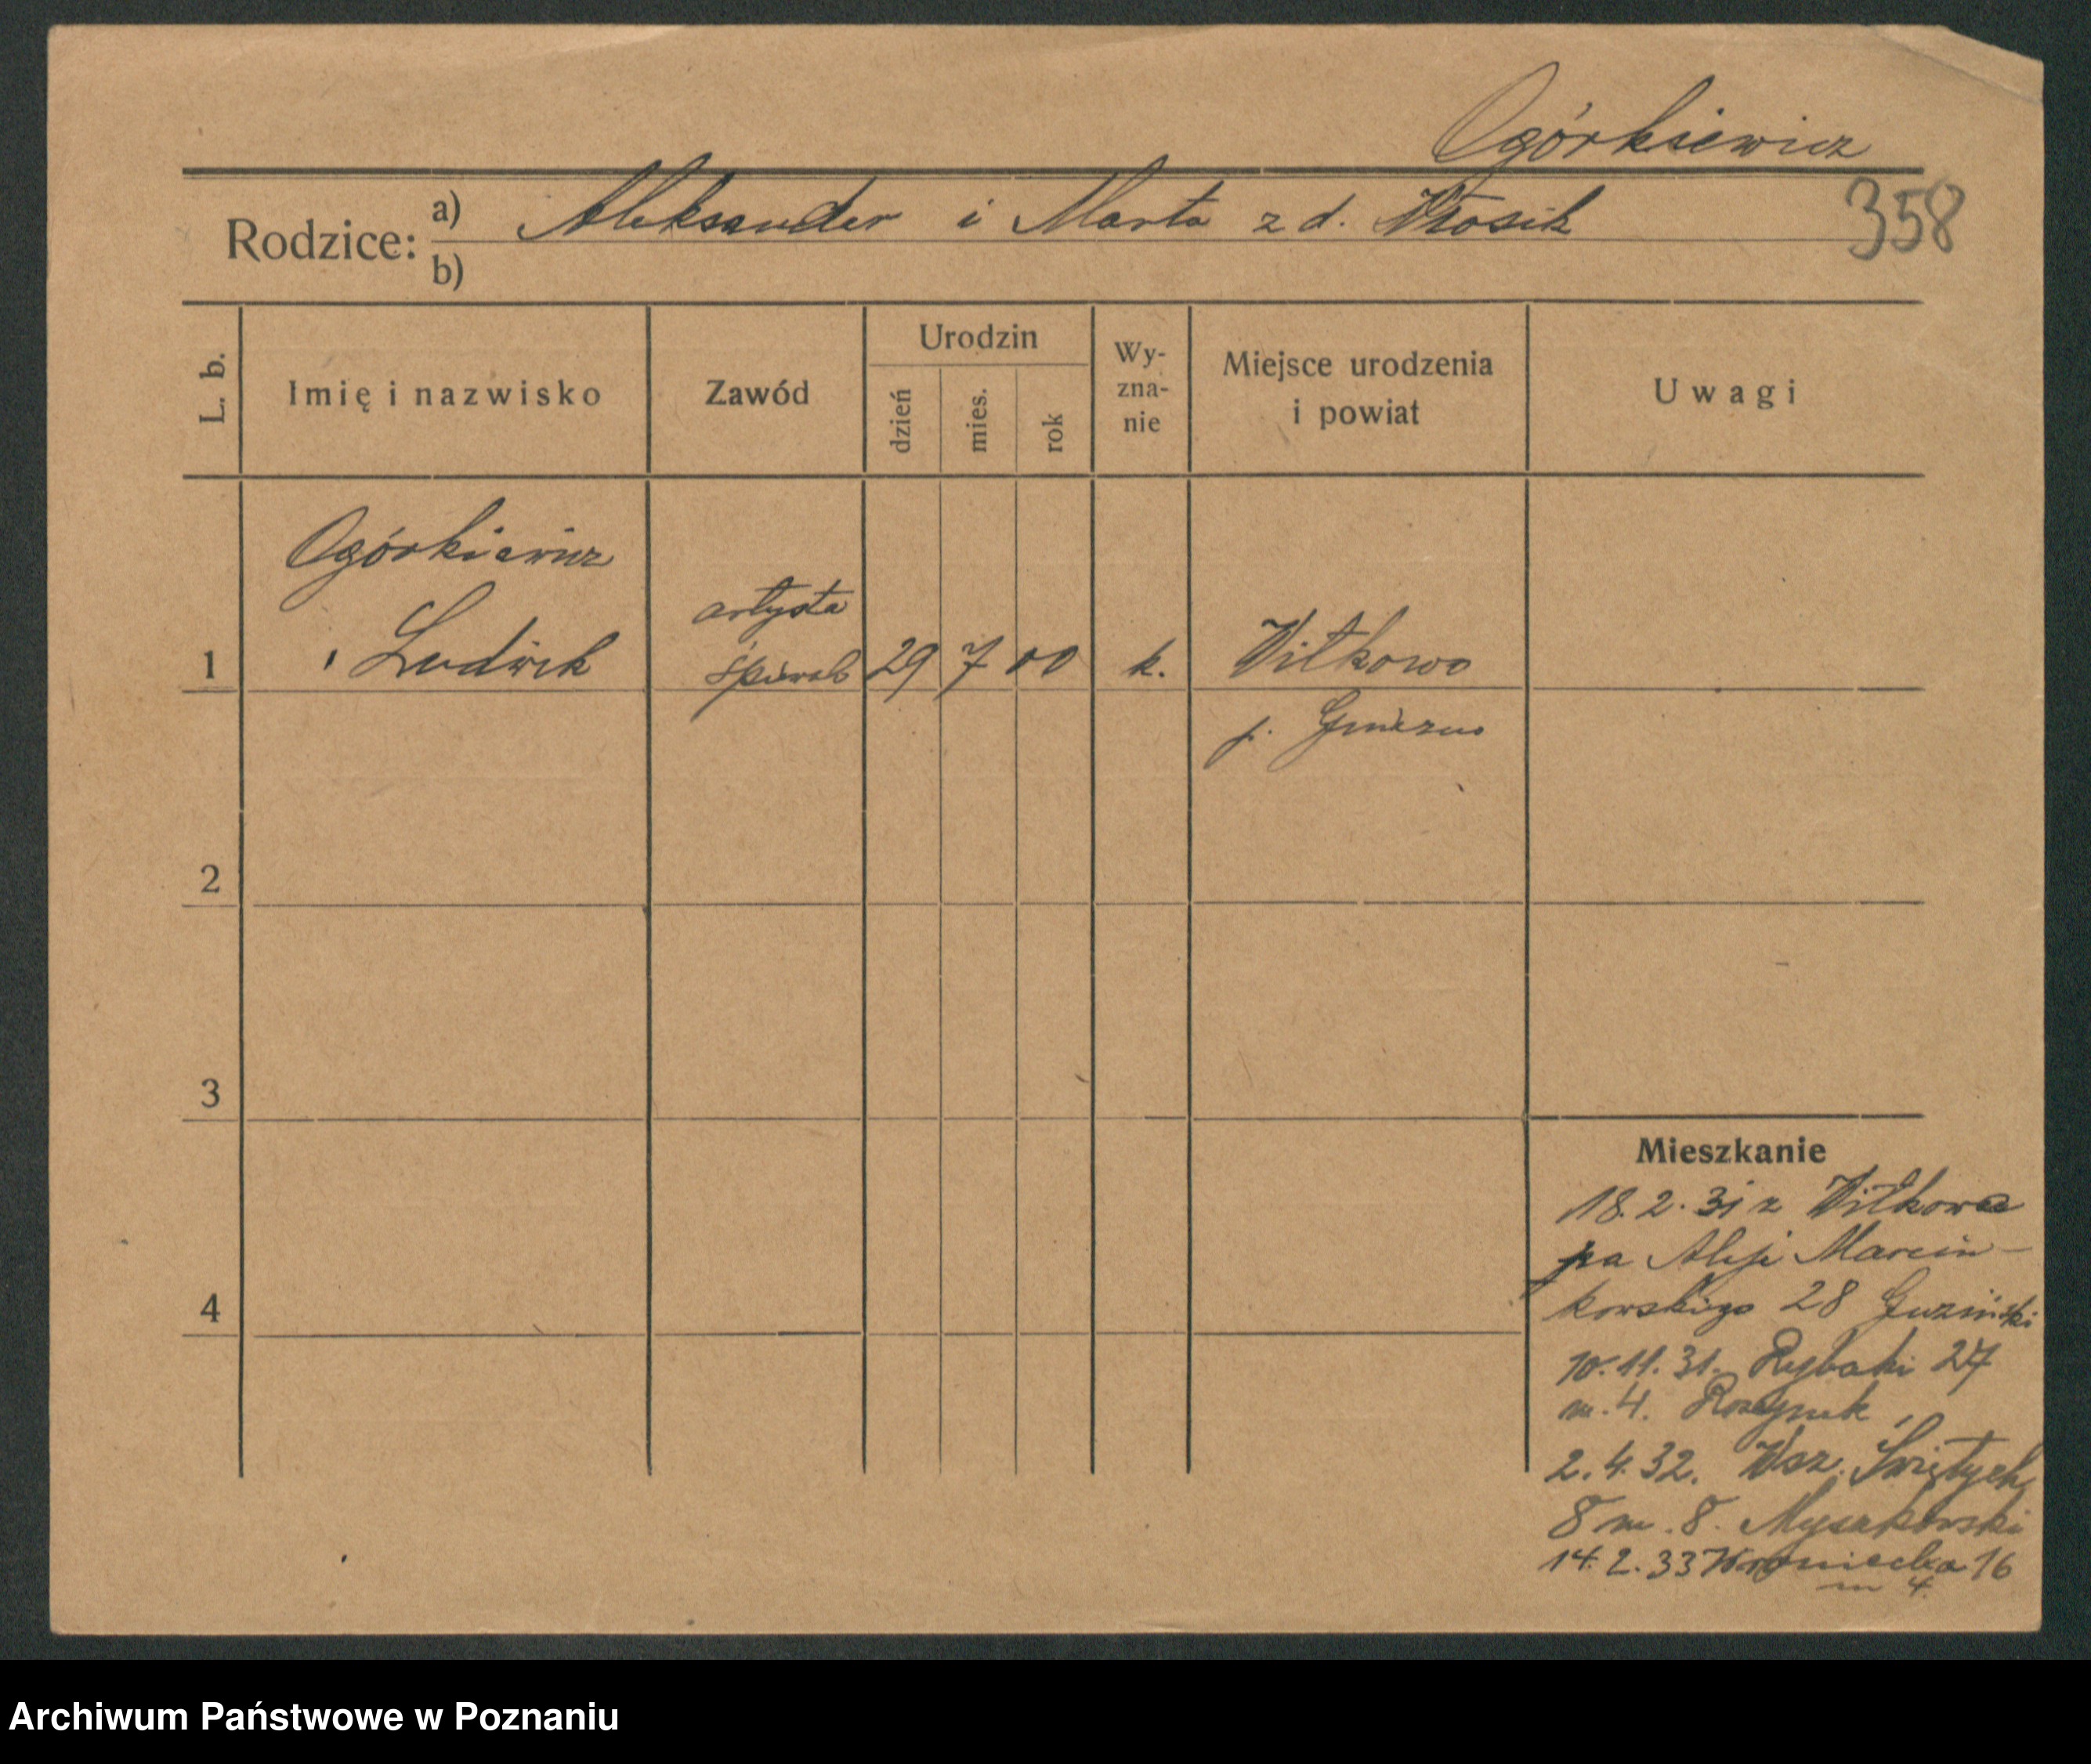 Ogórkiewicz
358
Rodzice: a) Aleksander i Marta z d. Włosik
b)
L. b.
Imię i nazwisko
Zawód
Urodzin
dzień
mies.
rok
Wy-
zna-
nie
Miejsce urodzenia
i powiat
Uwagi
Ogórkiewicz
1 Ludwik
artysta
śpiewak
29 7 00
k.
Witkowo
p. Gniezno
2
3
4
Mieszkanie
18.2.31 z Witkowa
na Aleje Marcin-
kowskiego 28 Guziński
10.11.31. Rybaki 27
m. 4.
2.4.32. Wsz. Świętych
8 m. 8. Myszkowski
14.2.33 16
m 4.
Archiwum Państwowe w Poznaniu